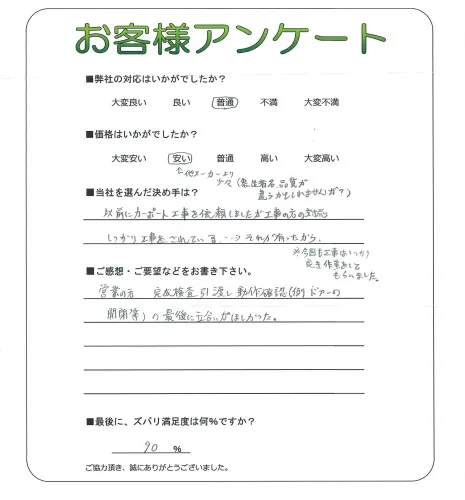 お客様アンケート
■弊社の対応はいかがでしたか？
大変良い 良い 普通 不満 大変不満
■価格はいかがでしたか？
大変安い 安い 普通 高い 大変高い
他メーカーより
少々 品質が
違うかもしれませんが？)
■当社を選んだ決め手は？
以前にカーポート工事を依頼しましたが工事の方の対応
しっかり工事をされている。…→それが有ったから。
※今回も工事はしっかり
良き作業をして
もらいました。
■ご感想・ご要望などをお書き下さい。
営業の方 完成検査 引渡し 動作確認(例 ドアーの
開閉等)の最後に立合いがほしかった。
■最後に、ズバリ満足度は何%ですか？
90 %
ご協力頂き、誠にありがとうございました。